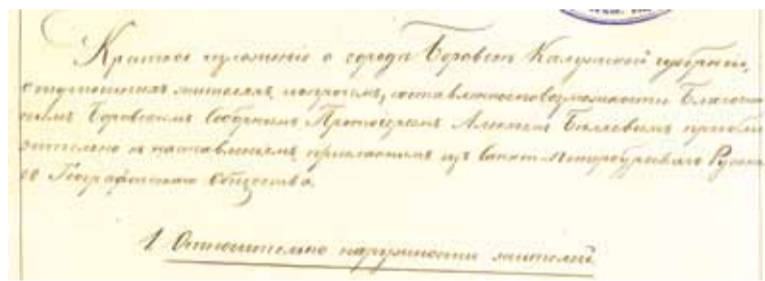 Краткое изложенiе о городѣ Боровскѣ Калужской губернiи,
о тутошнихъ жителяхъ и прочемъ, составленное по возможности Благочин
нымъ Боровскимъ Соборнымъ Протоiереемъ Алексѣемъ Бѣляевымъ прибли
зительно къ наставленiямъ присланнымъ изъ Санкт-Петербургскаго Русска
го Географическаго Общества.
1. Относительно наружности жителей.